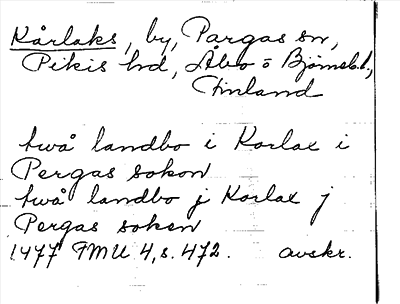 Kårlaks, by, Pargas sn,
Pikis hd, Åbo o Björneb.l.,
Finland
twå landbo i Korlax i
Pergas sokon
twå landbo j Korlax j
Pergas soken
1477 FMU 4, s. 472. avskr.